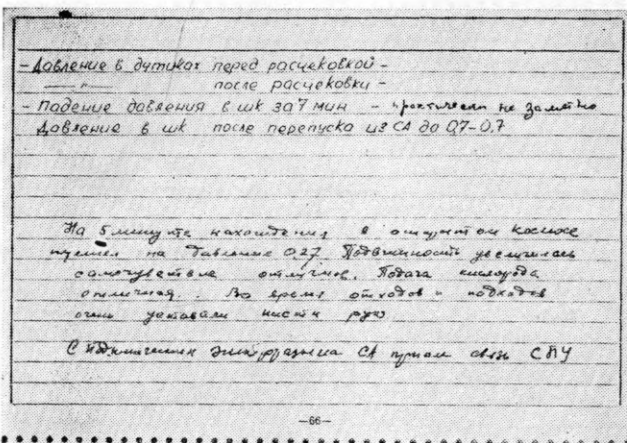 - Давление в дутиках перед расчековкой -
—"— после расчековки -
- Падение давления в шк за 7 мин - практически не заметно
Давление в шк после перепуска из СА до 0,7-0,7
На 5 минуте нахождения в открытом космосе
на давление 0.27. Подвижность увеличилась
самочувствие отличное. Подача кислорода
отличная. Во время отходов и подходов
очень уставали кисти рук
С СА связь СПУ
-66-